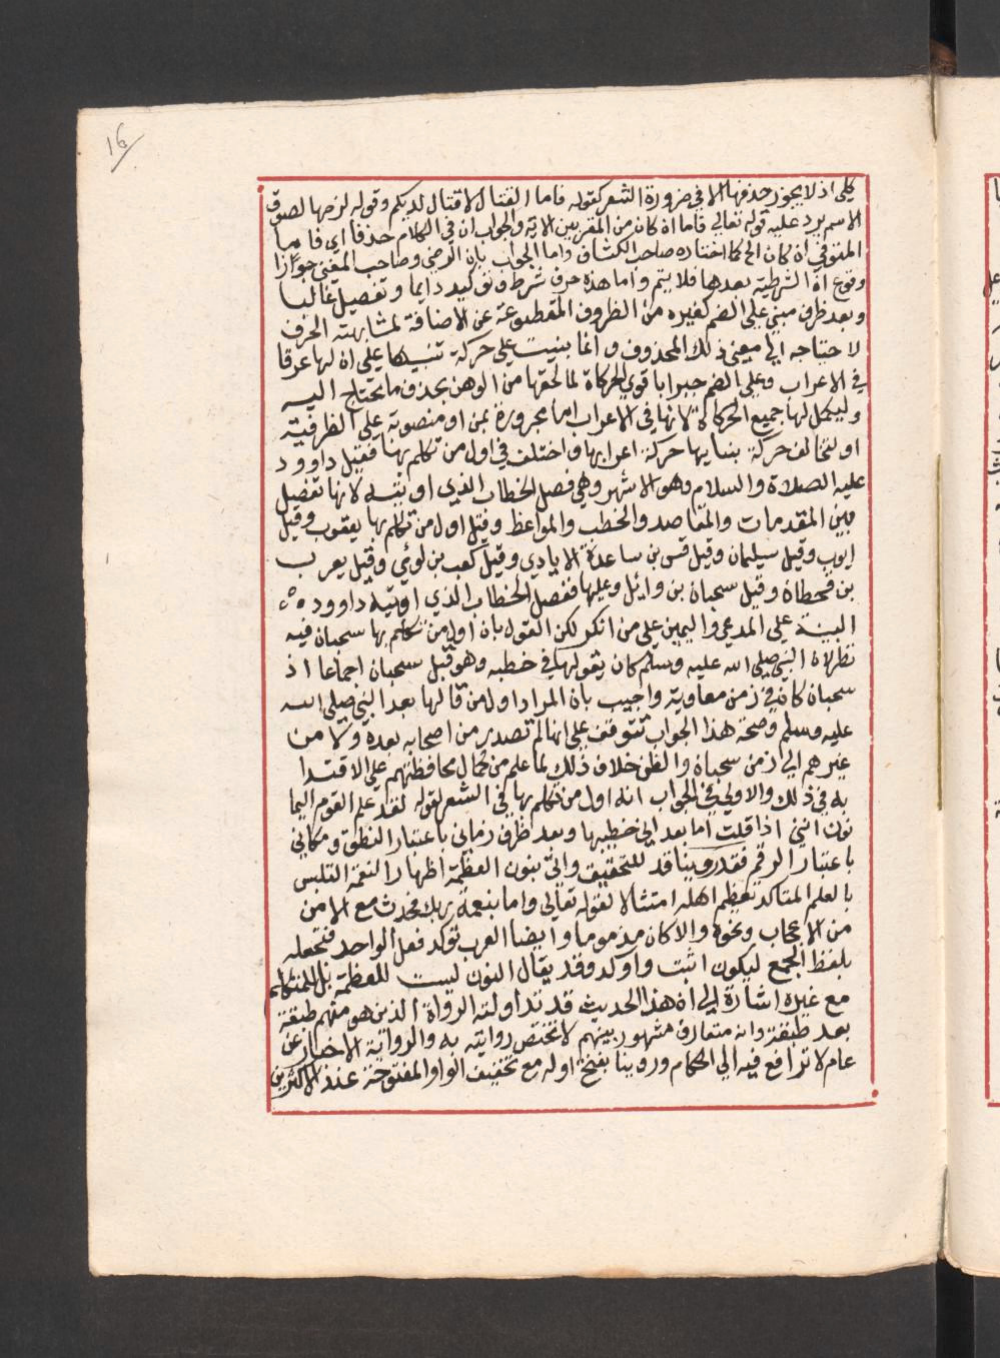 16
كلي اذ لا يجوز حذفها الا في ضرورة الشعر كقوله فاما القتال لا قتال لديكم وقوله لزمها لصوق
الاسم يرد عليه قوله تعالي فاما ان كان من المقربين الاية والجواب ان في الكلام حذفا اي فاما
المتوفي ان كان الخ كما اختاره صاحب الكشاف واما الجواب بان الرضي وصاحب المغني جوازا
وقوع ان الشرطية بعدها فلا يتم واما هذه حرف شرط وتوكيد دايما وتفصيل غالبا
وبعد ظرف مبني علي الضم كغيره من الظروف المقطوعة عن الاضافة لمشابهته الحرف
لاحتياجه الي معني ذلك المحذوف وانما بنيت علي حركة تنبيها علي ان لها عرقا
في الاعراب وعلي الضم جبرا باقوي الحركاة لما لحقها من الوهن بحذف ما يحتاج اليه
وليكمل لها جميع الحركاة لانها في الاعراب اما مجرورة بمن او منصوبة علي الظرفية
او لتخالف حركة بنايها حركة اعرابها واختلف في اول من تكلم بها فقيل داوود
عليه الصلاة والسلام وهو الاشهر وهي فصل الخطاب الذي اوتيه لانها تفصل
بين المقدمات والمقاصد والخطب والمواعظ وقيل اول من تكلم بها يعقوب وقيل
ايوب وقيل سليمان وقيل قس بن ساعدة الايادي وقيل كعب بن لوئي وقيل يعرب
بن قحطان وقيل سحبان بن وائل وعليها ففصل الخطاب الذي اوتيه داوود
البينة علي المدعي واليمين علي من انكر لكن القول بان اول من تكلم بها سحبان فيه
نظر لان النبي صلي الله عليه وسلم كان يقولها في خطبه وهو قبل سحبان اجماعا اذ
سحبان كان في زمن معاوية واجيب بان المراد اول من قالها بعد النبي صلي الله
عليه وسلم وصحة هذا الجواب تتوقف علي انها لم تصدر من اصحابه بعده ولا من
غيرهم الي زمن سحبان والظن خلاف ذلك لما علم من كمال محافظتهم علي الاقتدا
به في ذلك والاولي في الجواب انه اول من تكلم بها في الشعر لقوله لقد علم القوم اليما
نون انني اذا قلت اما بعد اني خطيبها وبعد ظرف زماني باعتبار النطق ومكاني
باعتبار الرقم فقد روينا قد للتحقيق واتي بنون العظمة اظهارا لنعمة التلبس
بالعلم المتاكد تعظيم اهله امتثالا لقوله تعالي واما بنعمة ربك فحدث مع الامن
من الاعجاب ونحوه والا كان مذموما وايضا العرب تؤكد فعل الواحد فتجعله
بلفظ الجمع ليكون اثبت واوكد وقد يقال النون ليست للعظمة بل للمتكلم
مع غيره اشارة الي ان هذا الحديث قد تداولته الرواة الذين هو منهم طبقة
بعد طبقة وانه متعارف مشهور بينهم لا تختص روايته به والرواية الاخبار عن
عام لا ترافع فيه الي الحكام وروينا بفتح اوله مع تخفيف الواو المفتوحة عند الاكثرين